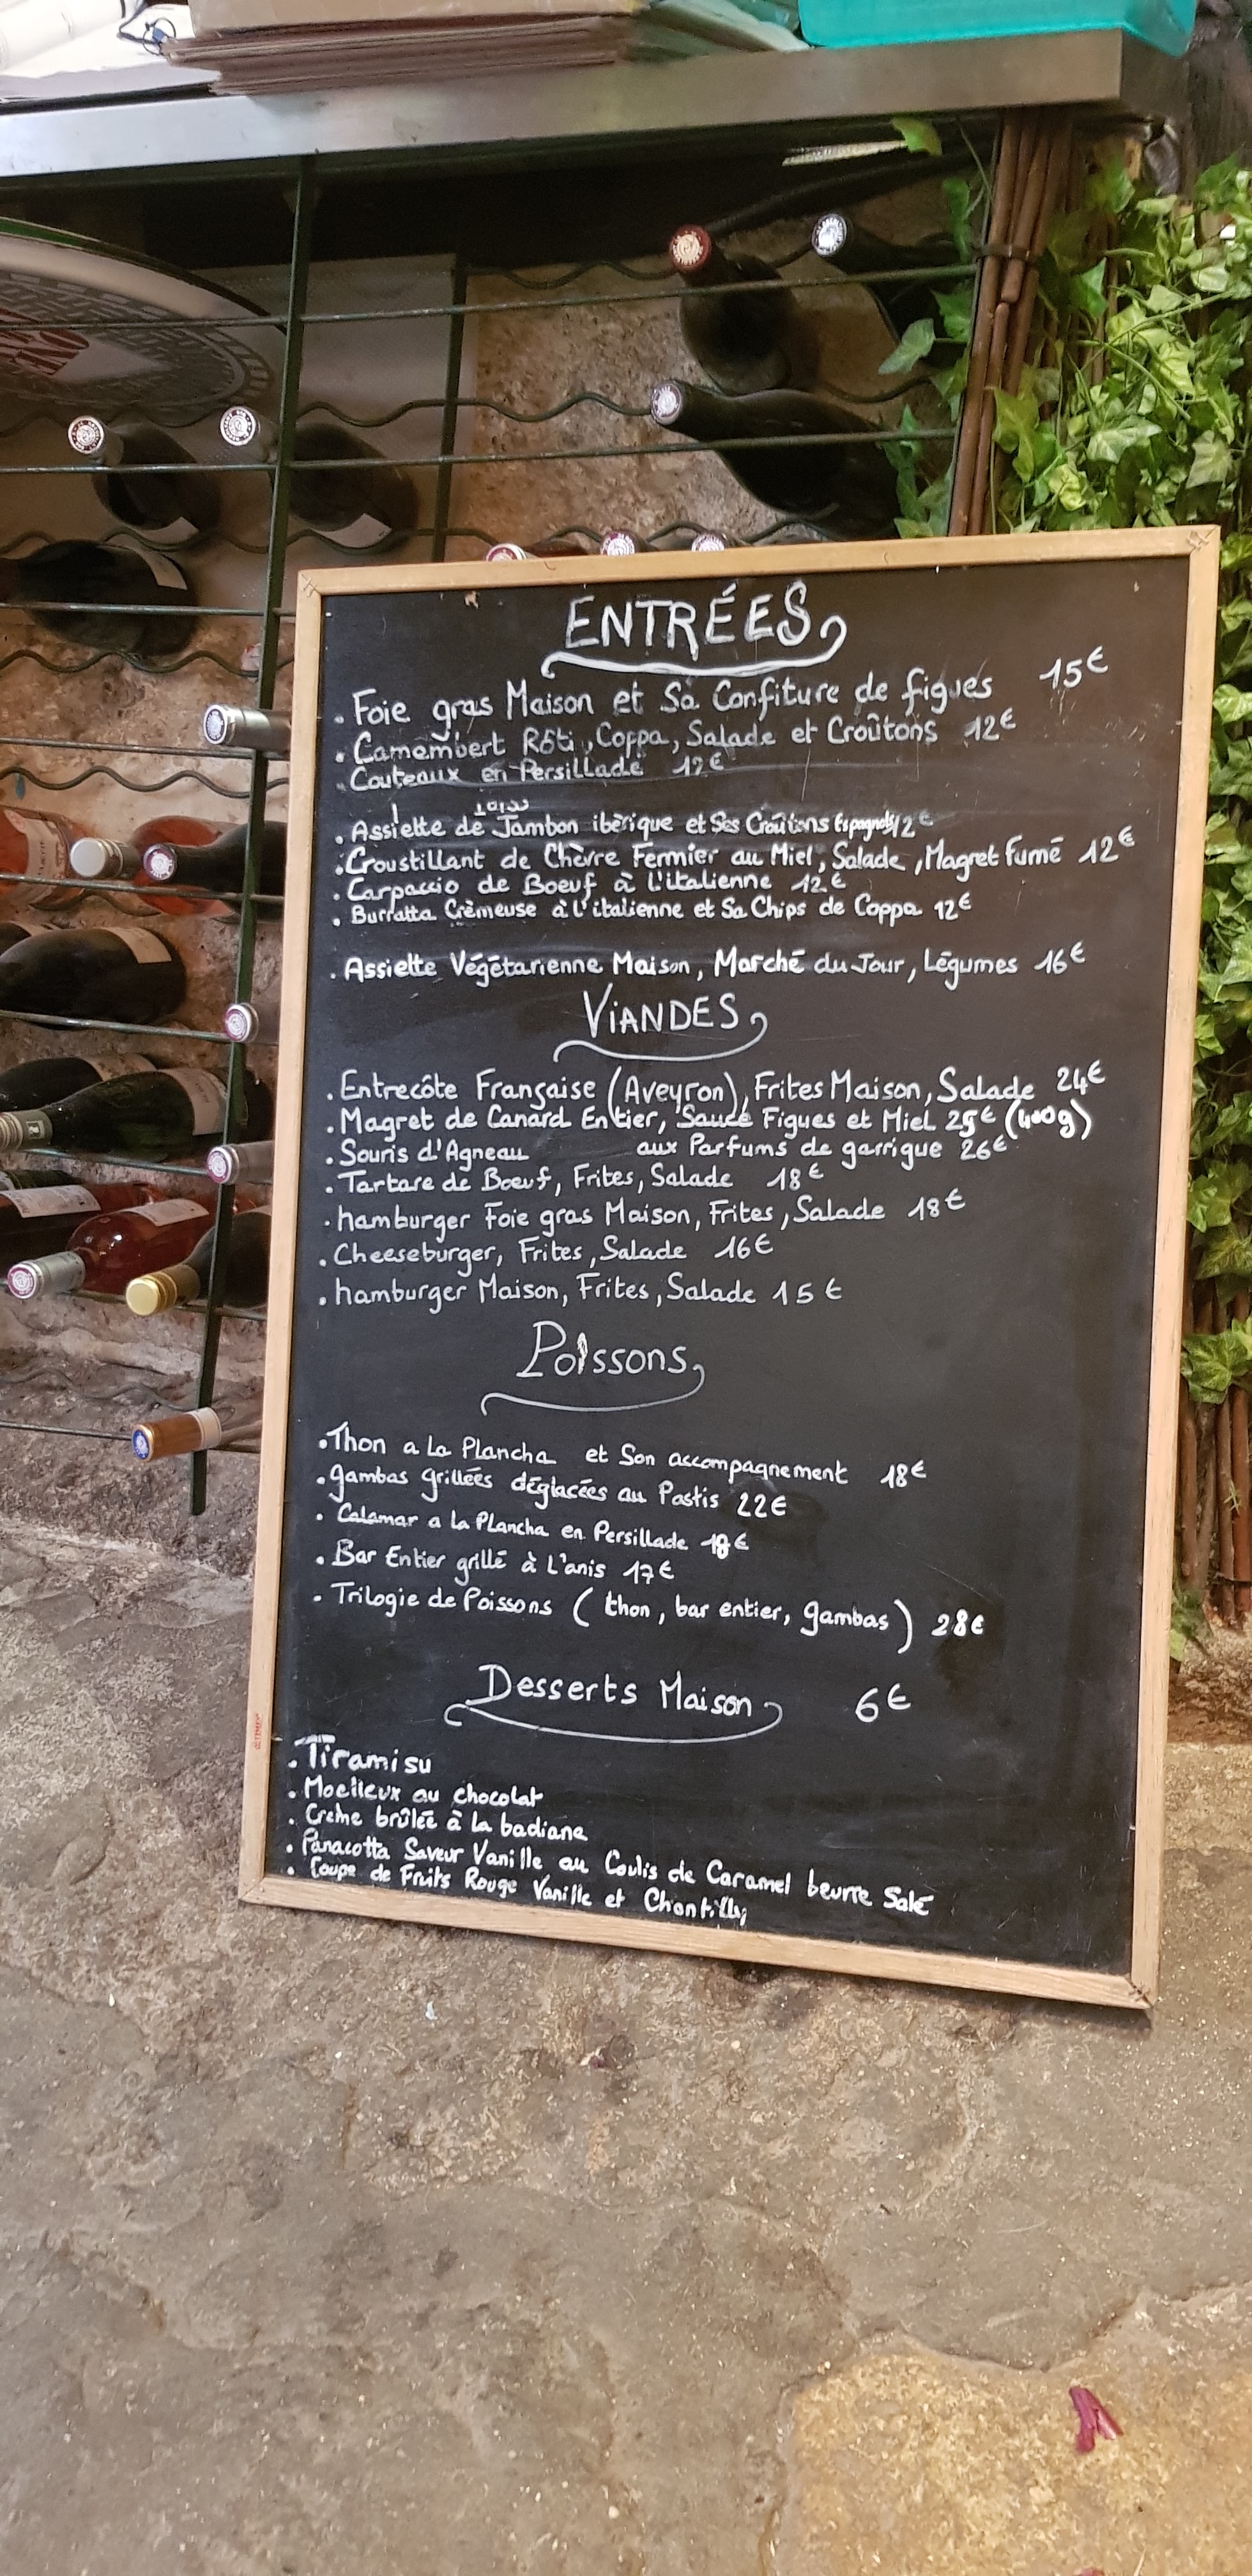 ENTRÉES
. Foie gras Maison et Sa Confiture de figues 15€
. Camembert Rôti, Coppa, Salade et Croûtons 12€
. Couteaux en Persillade 12€
. Assiette de Jambon ibérique et Ses Croûtons Espagnols 12€
. Croustillant de Chèvre Fermier au Miel, Salade, Magret Fumé 12€
. Carpaccio de Boeuf à l'italienne 12€
. Burratta Crèmeuse à l'italienne et Sa Chips de Coppa 12€
. Assiette Végétarienne Maison, Marché du Jour, Légumes 16€
ViANDES
. Entrecôte Française (Aveyron), Frites Maison, Salade 24€
. Magret de Canard Entier, Sauce Figues et Miel 25€ (400g)
. Souris d'Agneau aux Parfums de garrigue 26€
. Tartare de Boeuf, Frites, Salade 18€
. hamburger Foie gras Maison, Frites, Salade 18€
. Cheeseburger, Frites, Salade 16€
. hamburger Maison, Frites, Salade 15€
Poissons
. Thon a la Plancha et Son accompagnement 18€
. gambas grillées déglacées au Pastis 22€
. Calamar a la Plancha en Persillade 18€
. Bar Entier grillé à L'anis 17€
. Trilogie de Poissons (thon, bar entier, gambas) 28€
Desserts Maison 6€
. Tiramisu
. Moelleux au chocolat
. Crème brûlée à la badiane
. Panacotta Saveur Vanille au Coulis de Caramel beurre Salé
. Coupe de Fruits Rouge Vanille et Chantilly